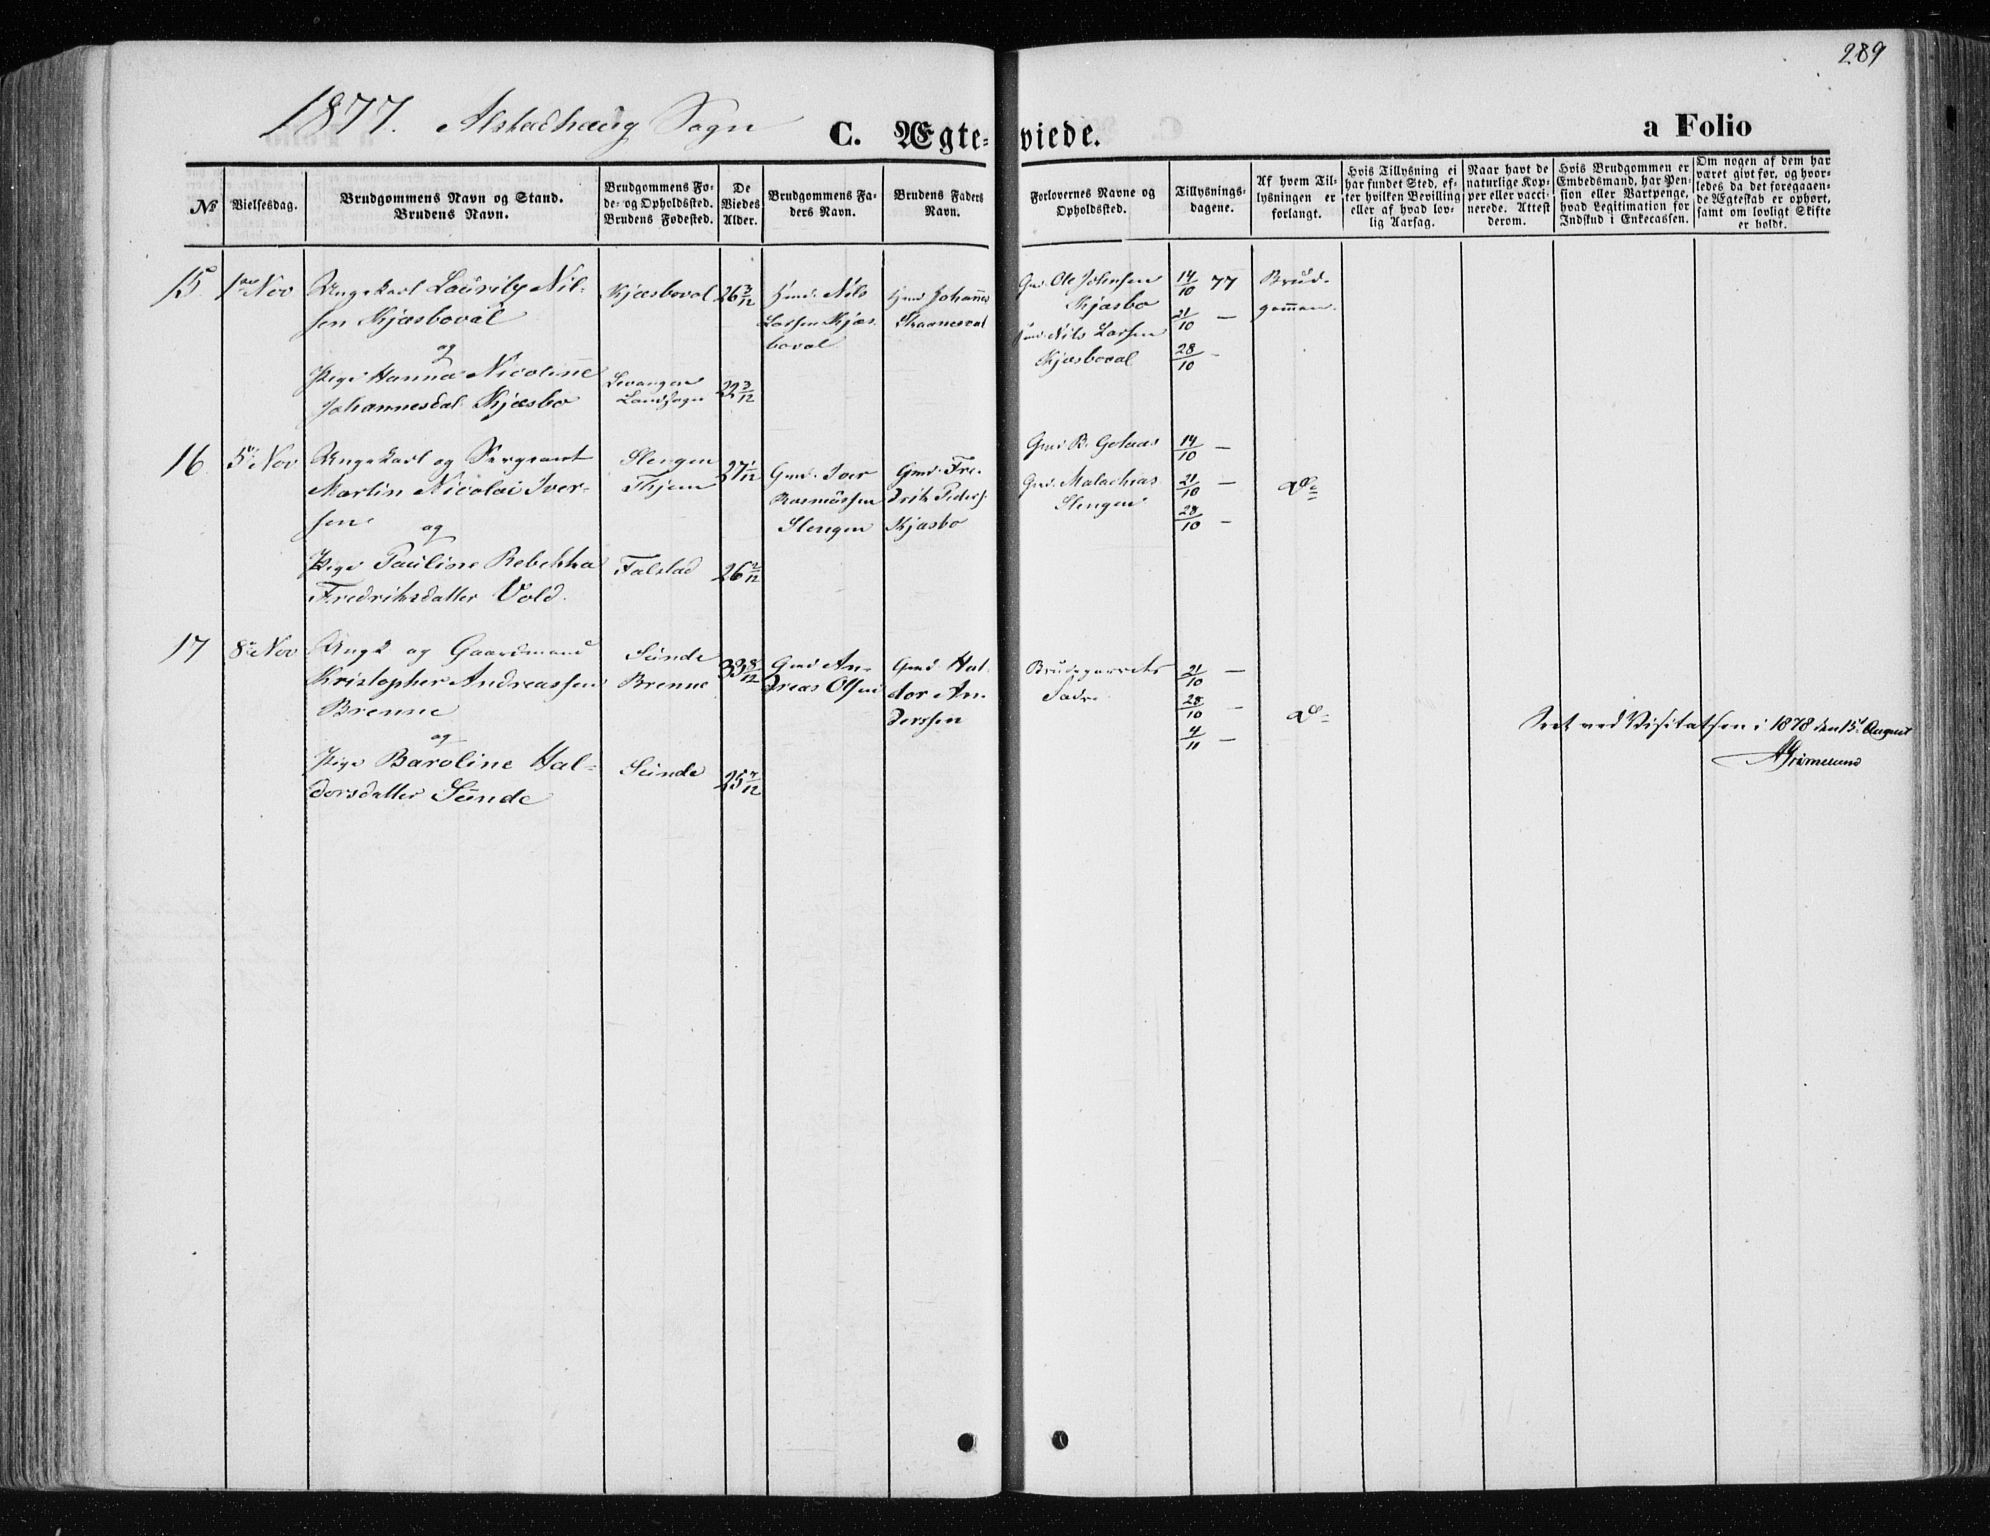 289
1877. Alstadhaug Sogn
C. Ægte- viede.
a Folio
No
Vielsesdag.
Brudgommens Navn og Stand.
Brudens Navn.
Brudgommens Fø-
de- og Opholdssted.
Brudens Fødested.
De
Viedes
Alder.
Brudgommens Fa-
ders Navn.
Brudens Faders
Navn.
Forlovernes Navne og
Opholdssted.
Tillysnings-
dagene.
Af hvem Til-
lysningen er
forlangt.
Hvis Tillysning ei
har fundet Sted, ef-
ter hvilken Bevilling
eller af hvad lov-
lig Aarsag.
Naar havt de
naturlige Kop-
per eller vacci-
nerede. Attest
derom.
Hvis Brudgommen er
Embedsmand, har Pen-
sion eller Vartpenge,
hvad Legitimation for
Indskud i Enkecassen.
Om nogen af dem har
været givt før, og hvor-
ledes da det foregaaen-
de Ægteskab er ophørt,
samt om lovligt Skifte
er holdt.
15 1 Nov Ungekarl Nil-
sen Kjæsboval
og
Pige Hanna Nicoline
Johannesdat. Kjæsbo
Kjæsboval
Levanger
Landsogn
26 3/12
22 3/12
Nils
Larsen Kjæs-
boval
Johannes
Gmd. Ole Johnsen
Kjæsbo
Nils Larsen
Kjæsboval
14/10 77
21/10 –
28/10 –
Brud-
gommen
16 5 Nov Ungekarl og Sergeant
Martin Nicolai Iver-
sen
og
Pige Pauline Rebekka
Fredriksdatter Vold.
Slengen
Falstad
27 1/12
26 2/12
Gmd. Iver
Rasmussen
Slengen
Gmd. Fre-
drik Peders.
Kjæsbo
Gmd. B.
Gmd. Malachias
Slengen
14/10 –
21/10 –
28/10 –
Do
17 8 Nov Ungk og Gaardmand
Kristopher Andreassen
Brenne
og
Pige Baroline Hal-
dorsdatter Sünde
Sünde
Brenne
Sünde
33 8/12
25
Gmd An-
dreas Olsen
Gmd. Hal-
dor An-
derssen
Fædre
21/10 –
28/10 –
4/11 –
Do
Seet ved Visitatsen i 1878 den 15 August
AGrimelund